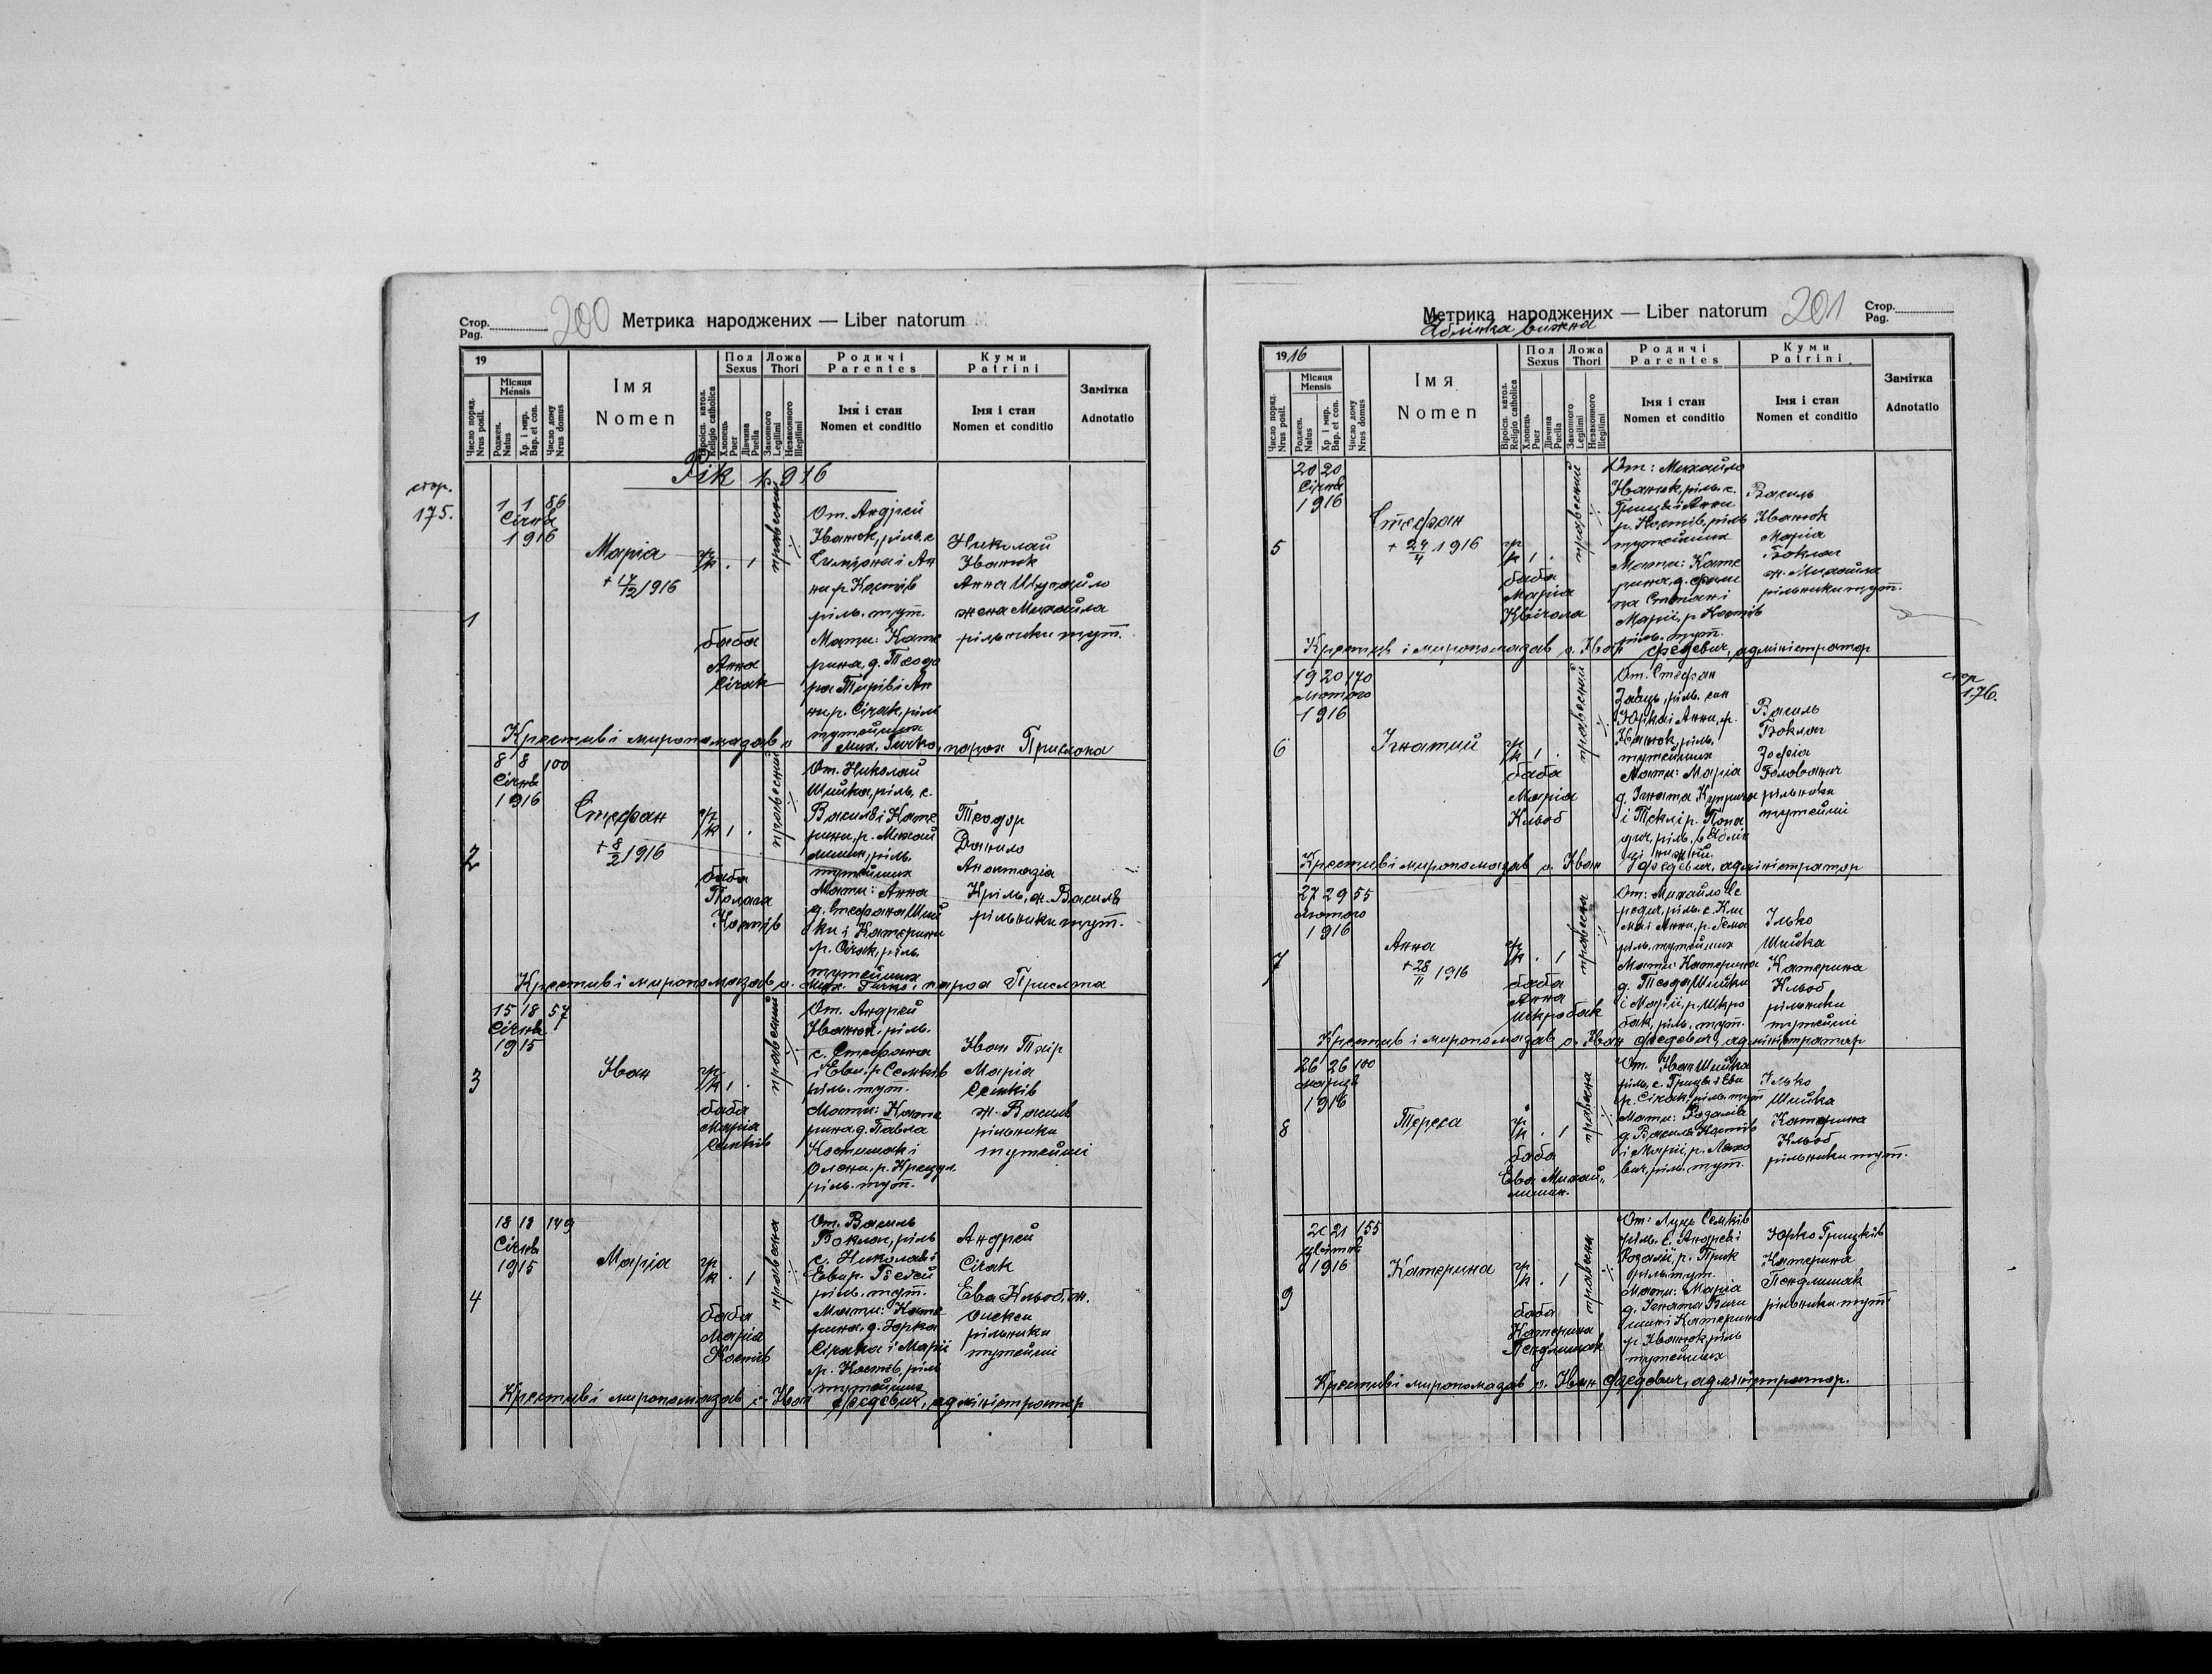 Стор.
Pag.
200
Метрика народжених — Liber natorum
19
Число поряд.
Nrus posit.
Місяця
Mensis
Роджен.
Natus
Хр. і мир.
Bap. et con.
Число дому
Nrus domus
Імя
Nomen
Віроісп. катол.
Religio catholica
Пол
Sexus
Хлопець
Puer
Дівчина
Puella
Ложа
Thori
Законного
Legitimi
Незаконного
Illegitimi
Родичі
Parentes
Імя і стан
Nomen et conditio
Куми
Patrini
Імя і стан
Nomen et conditio
Замітка
Adnotatio
Рік 1916
стор.
175.
1
1 1 86
Січня
1916
Марія
+ 17/2 1916
гр
к . 1
баба
Анна
Сірак
правесний
От. Андрей
Іванюк, ріль. с
Симеона і Ан
ни р. Костів
ріль. тут.
Мати: Кате
рина, д. Теодо
ра Тирів і Ан
ни р. Сірак, ріль
тутейших
Николай
Іванюк
Анна Шугайло
жена Михайла
рільники тут.
Крестив і миропомазав о. Мих. Гичко, парох Прислопа
2
8 8 100
Січня
1916
Стефан
+ 8/2 1916
гр
к 1 .
баба
Полага
Костів
правесний
От. Николай
Шийка, ріль. с.
Василя і Кате
рини, р. Михай
лишин, ріль.
тутейших
Мати: Анна
д. Стефана Ший
ки і Катерини
р. Сірак, ріль.
тутейших
Теодор
Данило
Анастазія
Кріль, ж. Василя
рільники тут.
Крестив і миропомазав о. Мих. Гичко, парох
3
15 18 57
Січня
1915
Іван
гр
к 1 .
баба
Марія
Семків
правесний
От. Андрей
Іванюк, ріль.
с. Стефана
і Еви, р. Семків
ріль. тут.
Мати: Кате
рина д. Павла
Костишак і
Олени, р.
ріль. тут.
Іван Таір
Марія
Семків
ж. Василя
рільники
тутейші
4
18 19 149
Січня
1915
Марія
гр
к . 1
баба
Марія
Костів
правесна
От. Василь
Боклач, ріль
с. Николая і
Еви р.
ріль. тут.
Мати: Кате
рина, д. Юрка
Сірака і Марії
р. Костів, ріль
тутейших
Андрей
Сірак
Ева Кльоб, ж.
Олекси
рільники
тутейші
Крестив і миропомазав о. Іван Федевич, адміністратор
Метрика народжених — Liber natorum
201
Стор.
Pag.
Яблінка вижна
1916
Число поряд.
Nrus posit.
Місяця
Mensis
Роджен.
Natus
Хр. і мир.
Bap. et con.
Число дому
Nrus domus
Імя
Nomen
Віроісп. катол.
Religio catholica
Пол
Sexus
Хлопець
Puer
Дівчина
Puella
Ложа
Thori
Законного
Legitimi
Незаконного
Illegitimi
Родичі
Parentes
Імя і стан
Nomen et conditio
Куми
Patrini.
Імя і стан
Nomen et conditio
Замітка
Adnotatio
5
20 20
Січня
1916
Стефан
+ 24/4 1916
гр
к 1 .
баба
Марія
правесний
От: Михайло
Іванюк, ріль. с.
Гриця і Анни
р. Костів, ріль
тутейших
Мати: Кате
рина, д.
Марії, р. Костів
ріль. тут.
Василь
Іванюк
Марія
Боклач
ж. Михайла
рільники тут.
Крестив і миропомазав о. Іван Федевич, адміністратор
6
19 20 170
лютого
1916
Ігнатий
гр
к 1 .
баба
Марія
Кльоб
правесний
От. Стефан
Заяць, ріль. син
Юрка і Анни, р.
Іванюк, ріль.
тутейших
Мати: Марія
д. Ігната
і Теклі р. Попа
дич, ріль. в Яблін
ці нижній.
Василь
Боклач
Зофія
Голованич
рільники
тутейші
Крестив і миропомазав о. Іван Федевич, адміністратор
стор
176.
7
27 29 55
лютого
1916
Анна
+ 28/11 1916
гр
к . 1
баба
Анна
Шкробак
правесна
От: Михайло
ріль. с. Кли
ма і Анни, р.
ріль. тутейших
Мати: Катерина
д. Теода Шийки
і Марії, р. Шкро
бак, ріль. тут.
Ілько
Шийка
Катерина
Кльоб
рільники
тутейші
Крестив і миропомазав о. Іван Федевич, адміністратор
8
26 26 100
марця
1916
Тереса
гр
к . 1
баба
Ева Михай
лишин.
правесна
От. Іван Шийка
ріль. с. Гриця і Еви
р. Сірак, ріль. тут
Мати: Розалія
д. Василя Костів
і Марії, р.
вич, ріль. тут.
Ілько
Шийка
Катерина
Кльоб
рільники тут.
9
20 21 155
цвітня
1916
Катерина
гр
к . 1
баба
Катерина
Пендлишак
правесна
От: Луць Семків
ріль. с. Андрея і
Розалії, р. Прик
ріль. тут.
Мати: Марія
д. Ігната
і Катерини
р. Іванюк, ріль
тутейших
Юрко Грицків
Катерина
Пендлишак
рільники тут.
Крестив і миропомазав о. Іван Федевич, адміністратор.